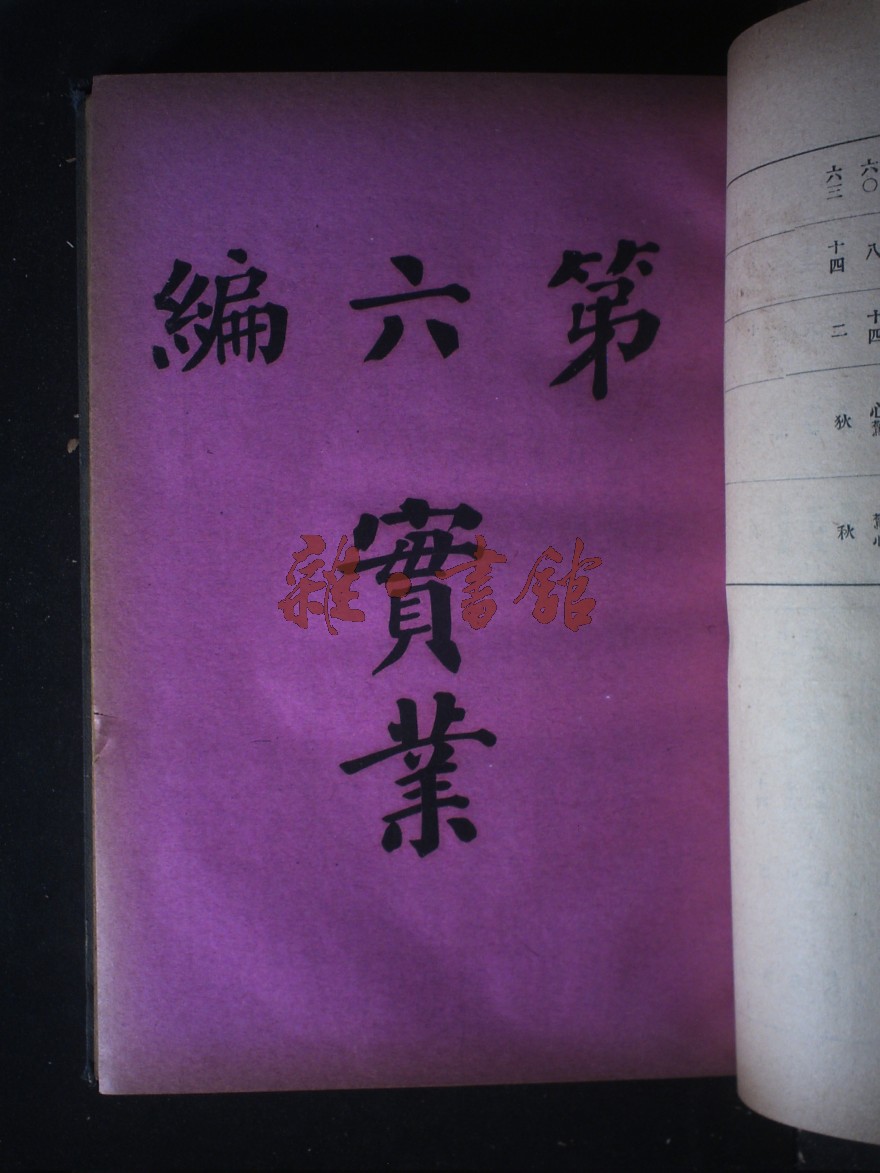 第六編
實業
雜·書館
六〇 八 十四
六三 十四 二 狄 秋